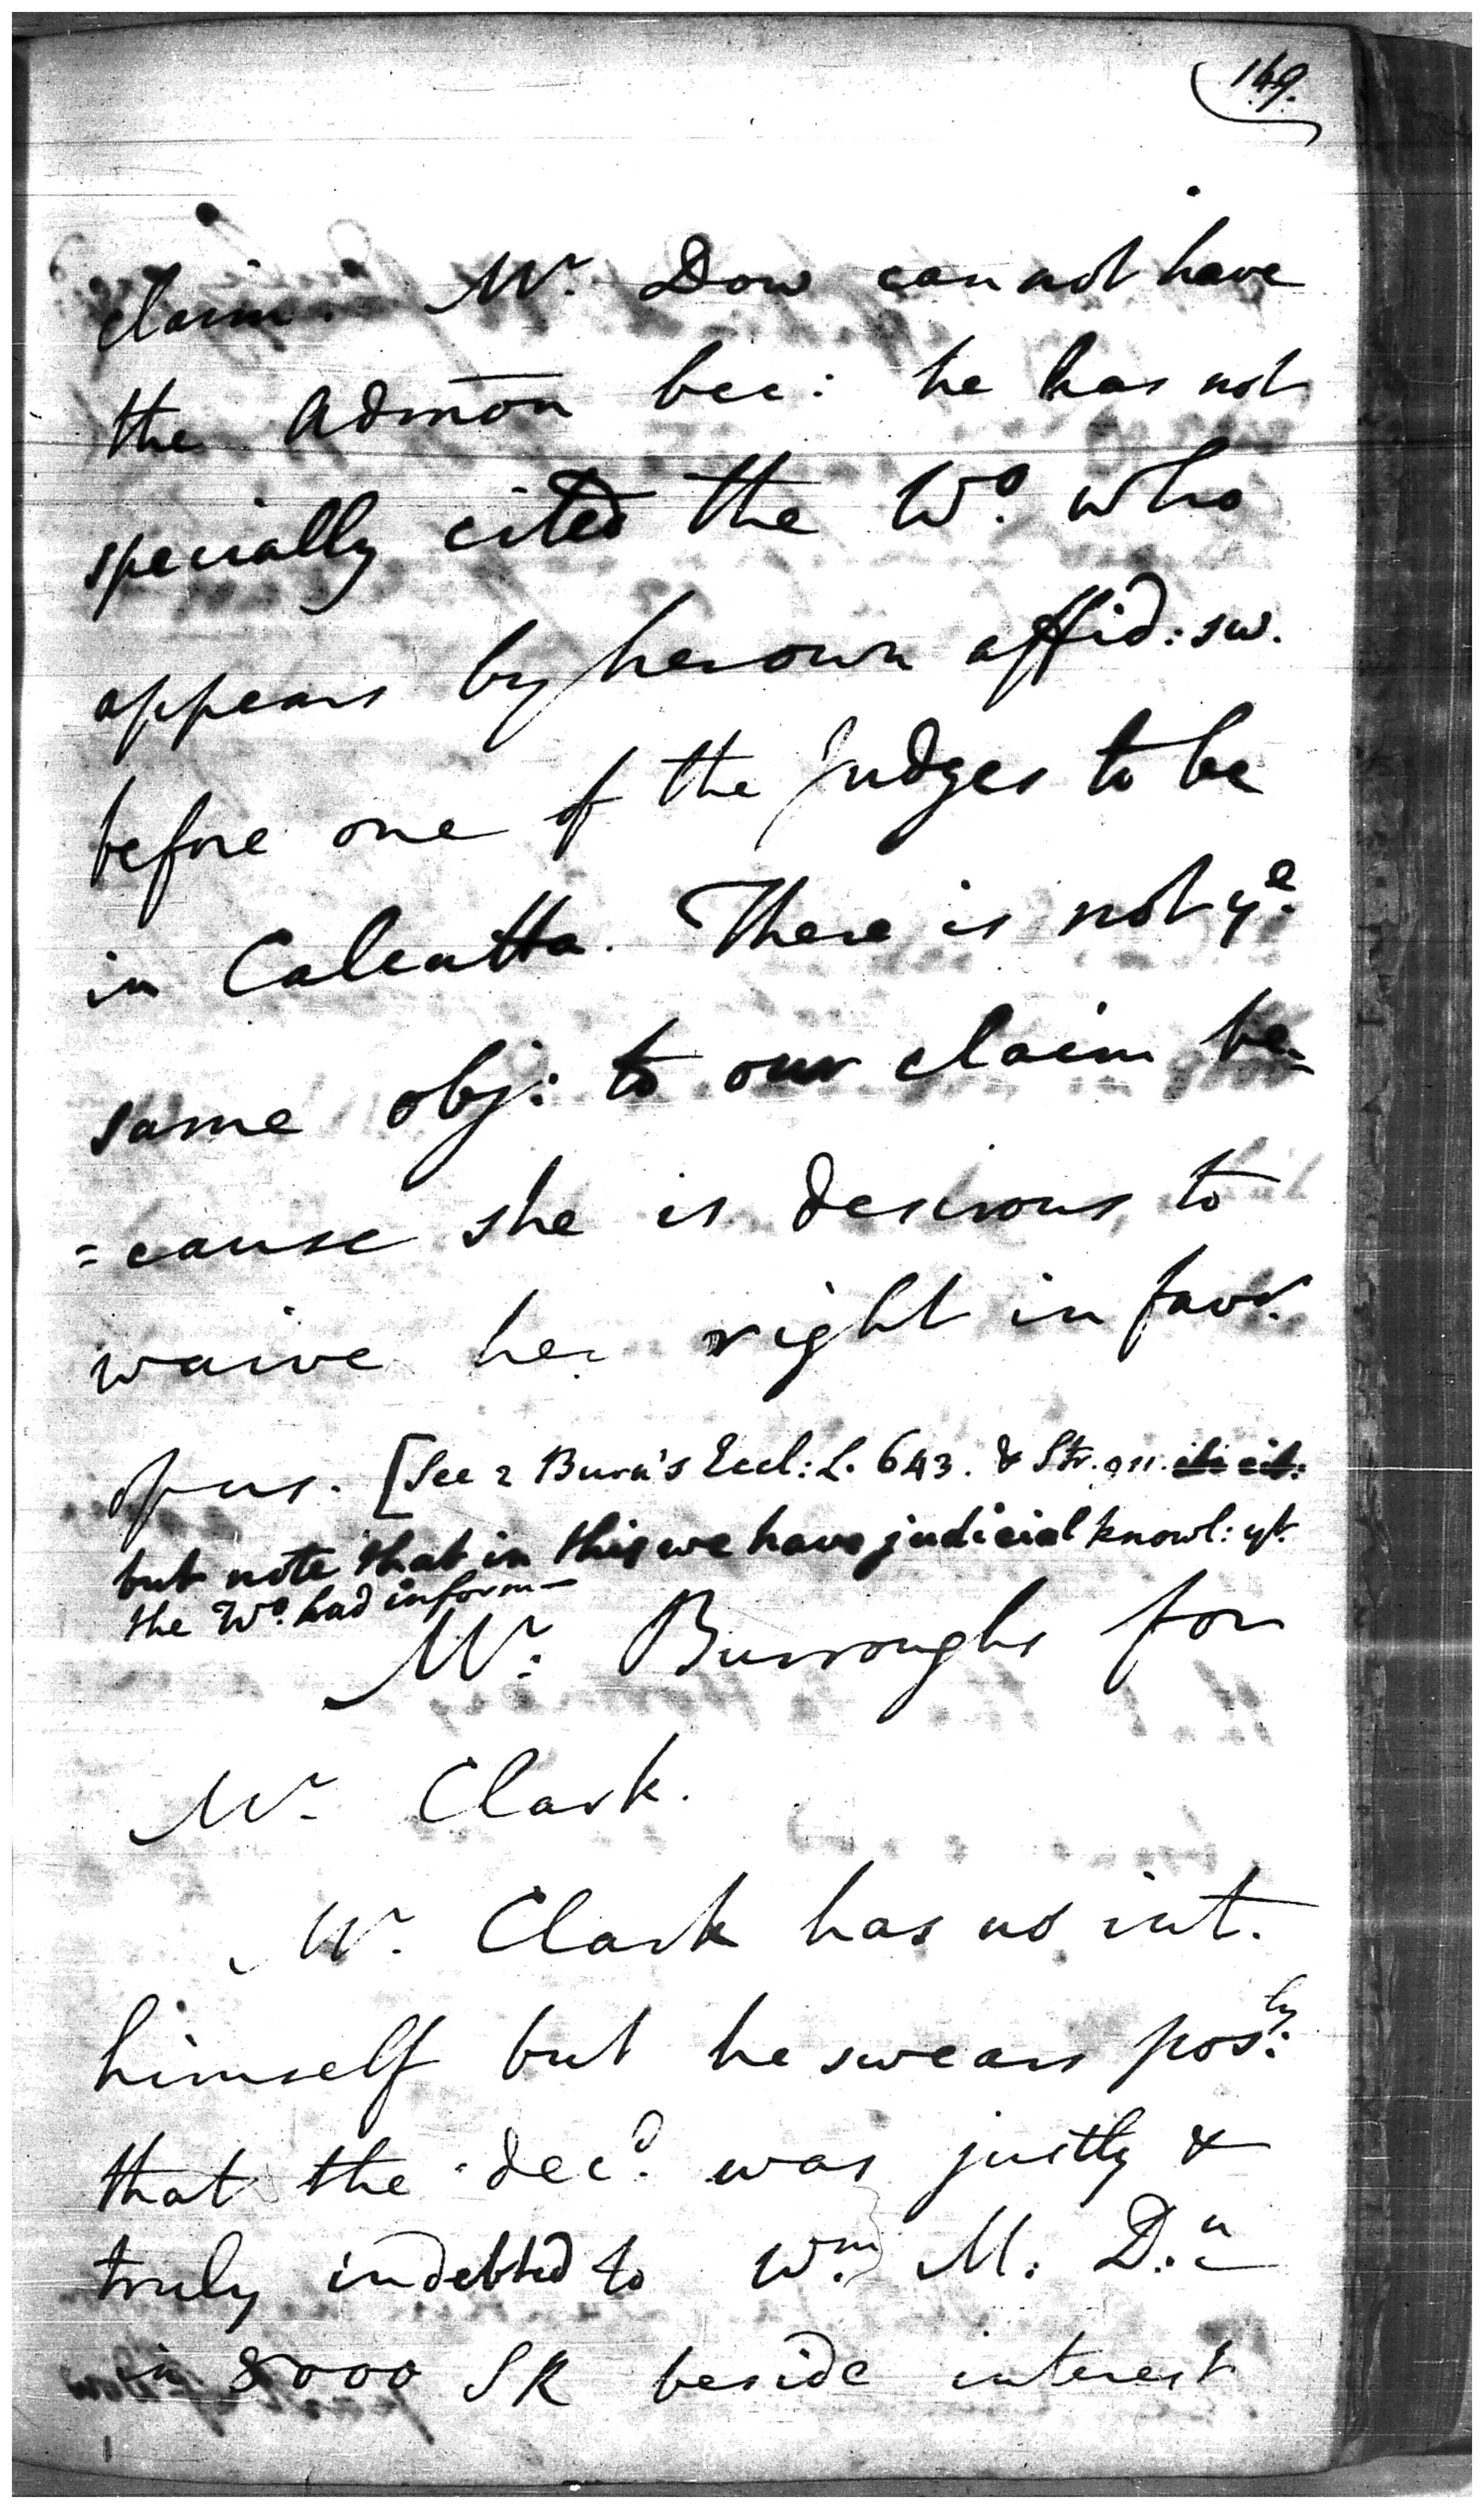 149.
claim. Mr. Dow cannot have
the Admōn bec: he has not
specially cited the Wo. who
appears by her own affid: sw.
before one of the Judges to be
in Calcutta. There is not ye.
same obj: to our claim be-
=cause she is desirous to
waive her right in favr.
of us. [See 2 Burn's Eccl: L. 643. & Str. 911.
but note that in this we have judicial knowl: yt.
the Wo. had inform—
Mr. Burroughs for
Mr. Clark.
Mr. Clark has no int.
himself but he swears posly.
that the decd. was justly &
truly indebted to Wm. M. D.n
in 8000 SR beside interest